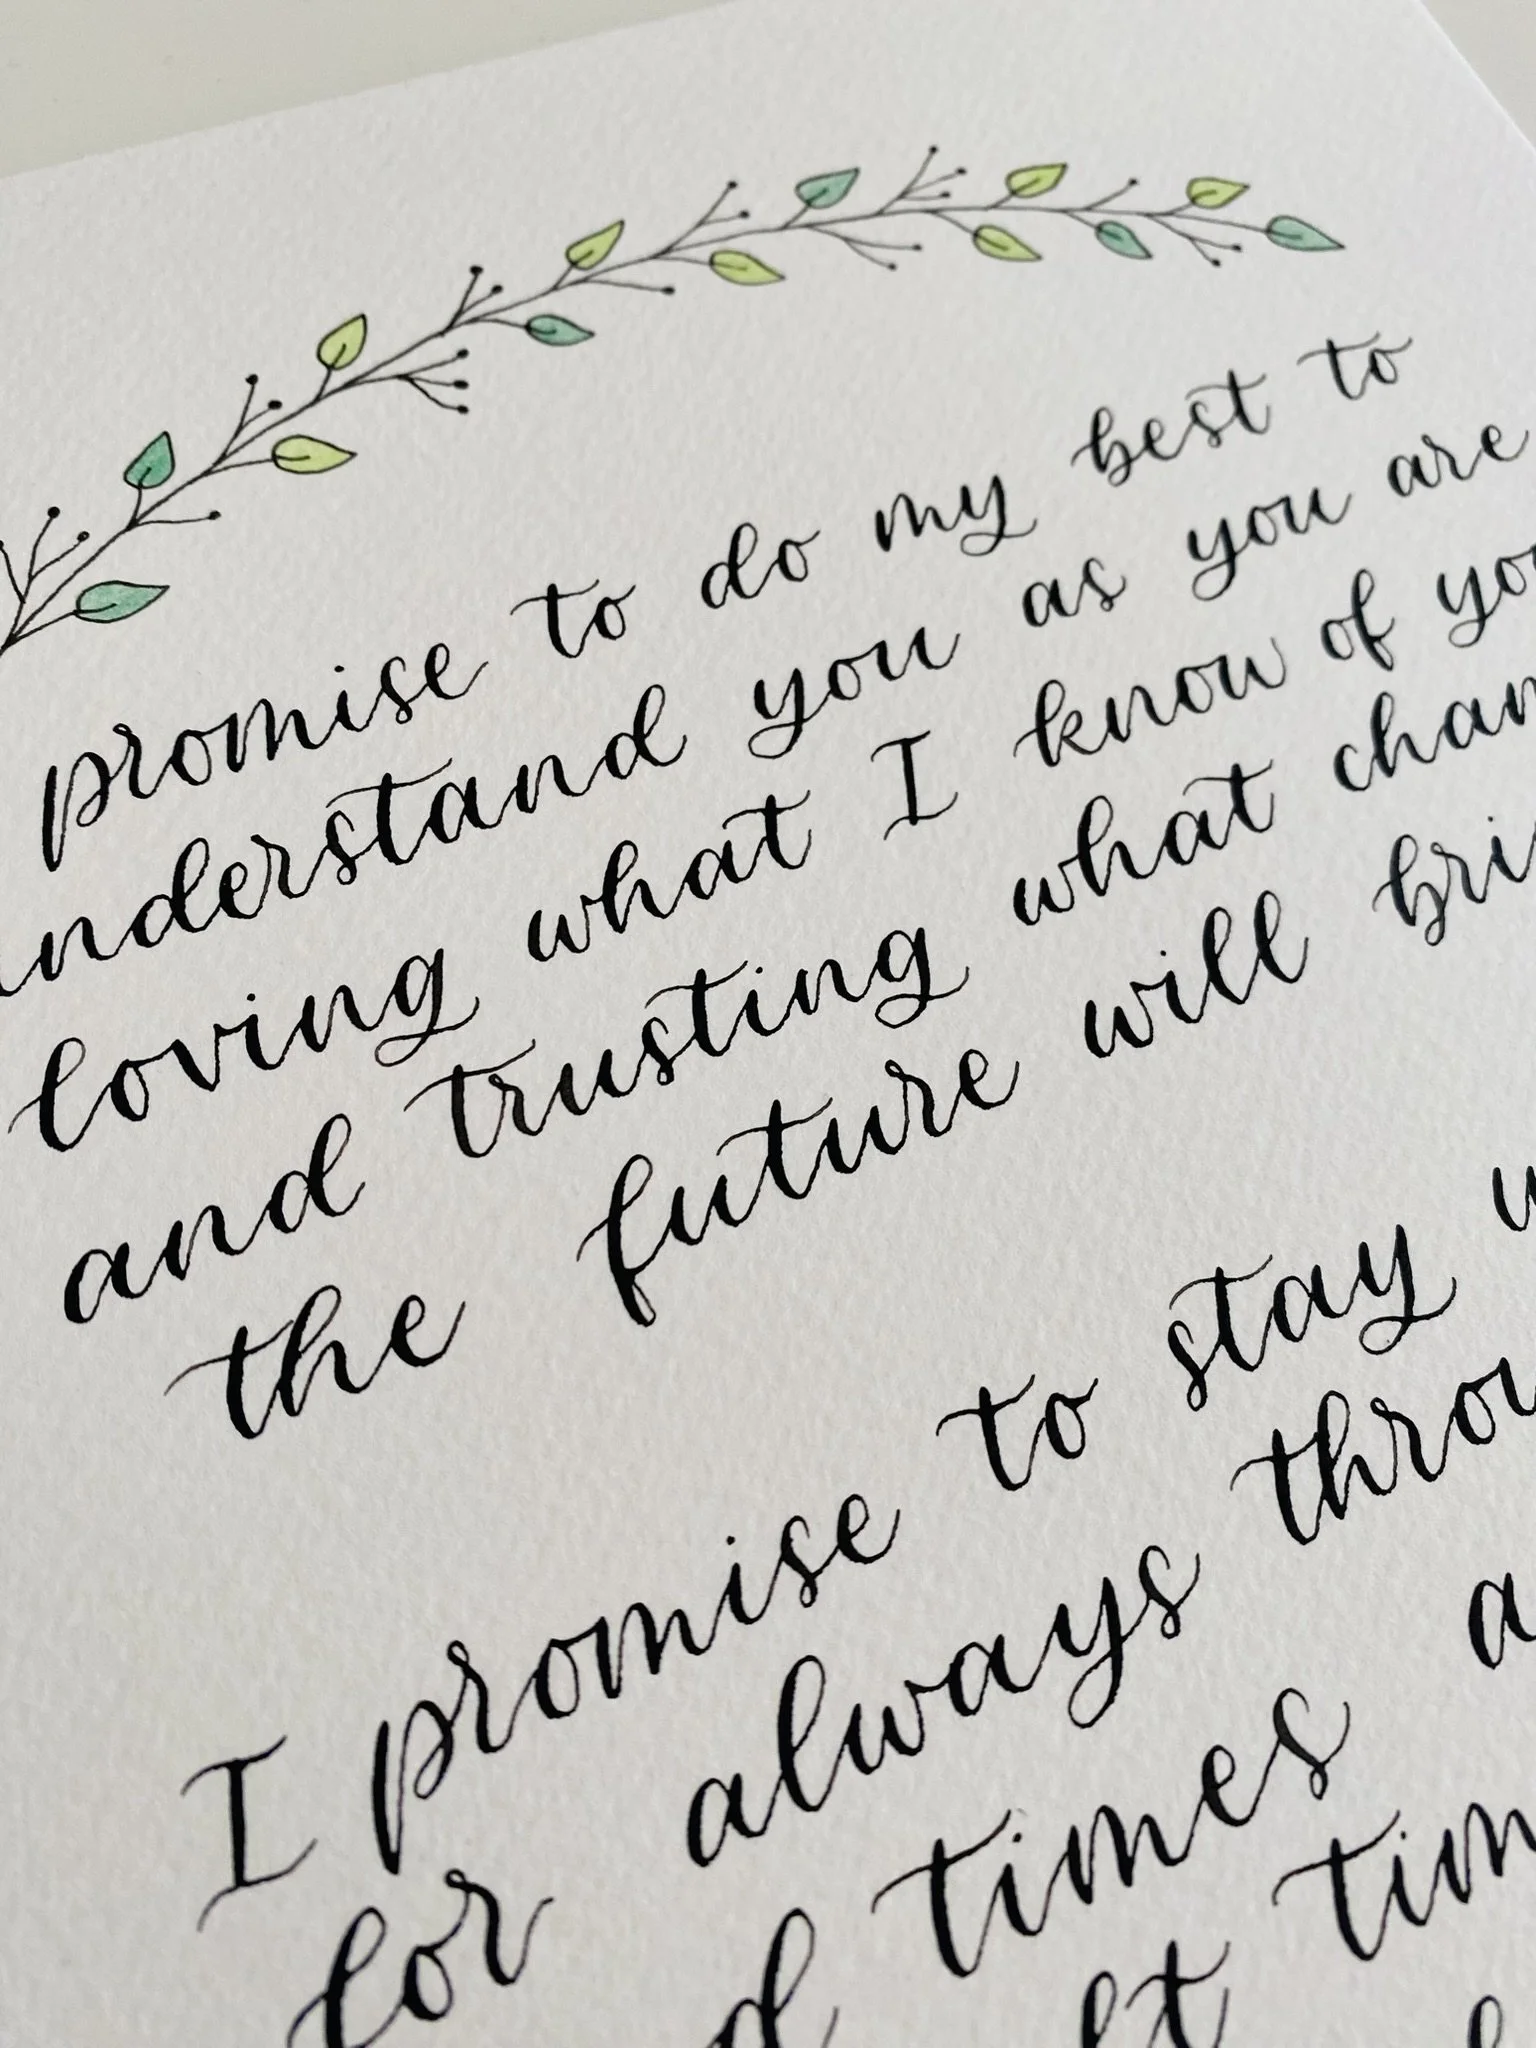 promise to do my best to
understand you as you are
loving what I know of you
and trusting what
the future will
I promise to stay
for always
times